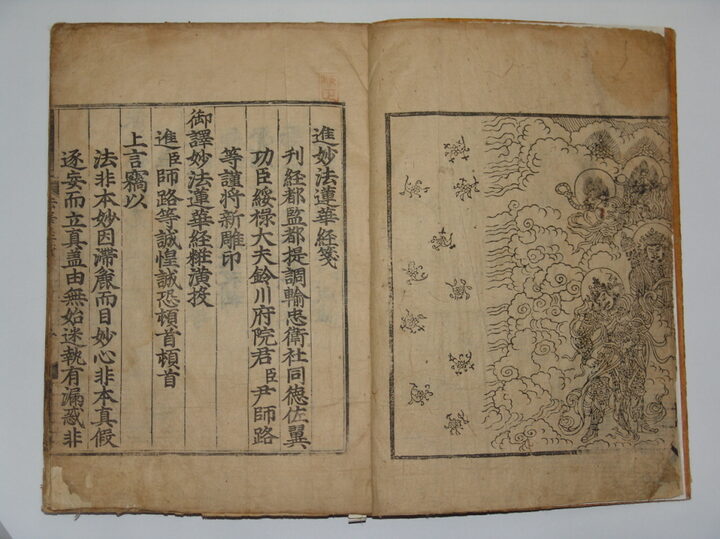 進妙法蓮華經箋
刋經都監都提調輸忠衛社同德佐翼
功臣綏祿大夫鈴川府院君臣尹師路
等謹將新雕印
御譯妙法蓮華經粧潢投
進臣師路等誠惶誠恐頓首頓首
上言竊以
法非本妙因滯麁而目妙心非本真假
逐妄而立真盖由無始迷執有漏惑非